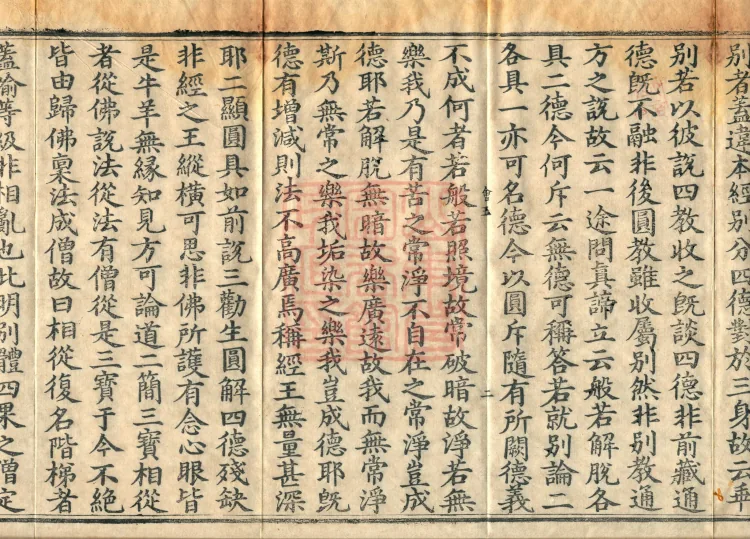 別者蓋違本經別分四德對於三身故云乖
別若以彼說四教收之旣談四德非前藏通
德旣不融非後圓教雖收屬別然非別教通
方之說故云一途問真諦立云般若解脫各
具二德今何斥云無德可稱答若就別論二
各具一亦可名德今以圓斥隨有所闕德義
不成何者若般若照境故常破暗故淨若無
樂我乃是有苦之常淨不自在之常淨豈成
德耶若解脫無暗故樂廣遠故我而無常淨
斯乃無常之樂我垢染之樂我豈成德耶旣
德有增減則法不高廣焉稱經王無量甚深
耶二顯圓具如前說三勸生圓解四德殘缺
非經之王縱橫可思非佛所護有念心眼皆
是牛羊無緣知見方可論道二簡三寶相從
者從佛說法從法有僧從是三寶于今不絕
皆由歸佛稟法成僧故曰相從復名階梯者
蓋喻等級非相亂也此明別體四果之僧定
會五
二